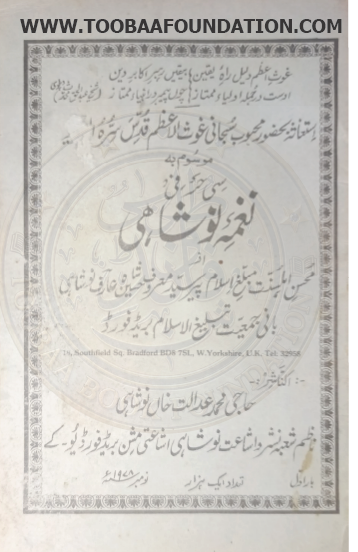 WWW.TOOBAAFOUNDATION.COM
غوث اعظم دلیل راہ یقین بیقیں رہبر اکابر دین
اوست در جملہ اولیاء ممتاز چوں پیمبر در انبیاء ممتاز
استغاثہ بحضور محبوب سبحانی غوث الاعظم قدس سرہ
موسوم بہ
سی حرفی
نغمہ نوشاہی
از
محسن اہلسنت مبلغ اسلام پیر سید معروف حسین شاہ عارف نوشاہی
بانی جمعیت تبلیغ الاسلام بریڈفورڈ
Southfield Sq. Bradford BD8 7SL, W.Yorkshire, U.K. Tel:
الناشر
حاجی محمد عدالت خاں نوشاہی
ناظم شعبہ نشر و اشاعت نوشاہی اشاعتی مشن بریڈفورڈ یو۔کے
بار اول تعداد ایک ہزار نومبر ۱۹۷۸ء